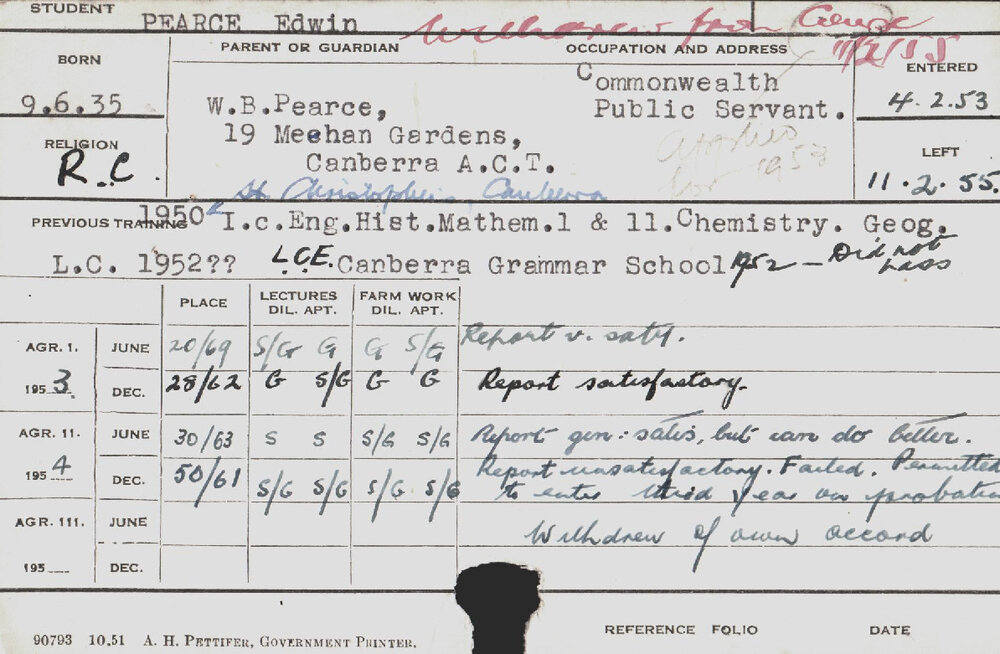 STUDENT PEARCE Edwin Withdrew from Course
11/2/55
BORN PARENT OR GUARDIAN OCCUPATION AND ADDRESS ENTERED
9.6.35 W.B.Pearce, Commonwealth Public Servant. 4.2.53
19 Meehan Gardens,
RELIGION Canberra A.C.T. Applied for 1953 LEFT
R.C. St Christopher's, Canberra 11.2.55.
PREVIOUS TRAINING 1950 I.c.Eng.Hist.Mathem.1 & 11.Chemistry. Geog.
L.C. 1952?? L.C.E. Canberra Grammar School 1952 — Did not pass
PLACE LECTURES DIL. APT. FARM WORK DIL. APT.
AGR. 1. JUNE 20/69 S/G G G S/G Report v. satis.
1953. DEC. 28/62 G S/G G G Report satisfactory.
AGR. 11. JUNE 30/63 S S S/G S/G Report gen: satis, but can do better.
1954 DEC. 50/61 S/G S/G S/G S/G Report unsatisfactory. Failed. Permitted
to enter third year on probation
AGR. 111. JUNE Withdrew of own accord
195 DEC.
90793 10.51 A. H. PETTIFER, GOVERNMENT PRINTER. REFERENCE FOLIO DATE